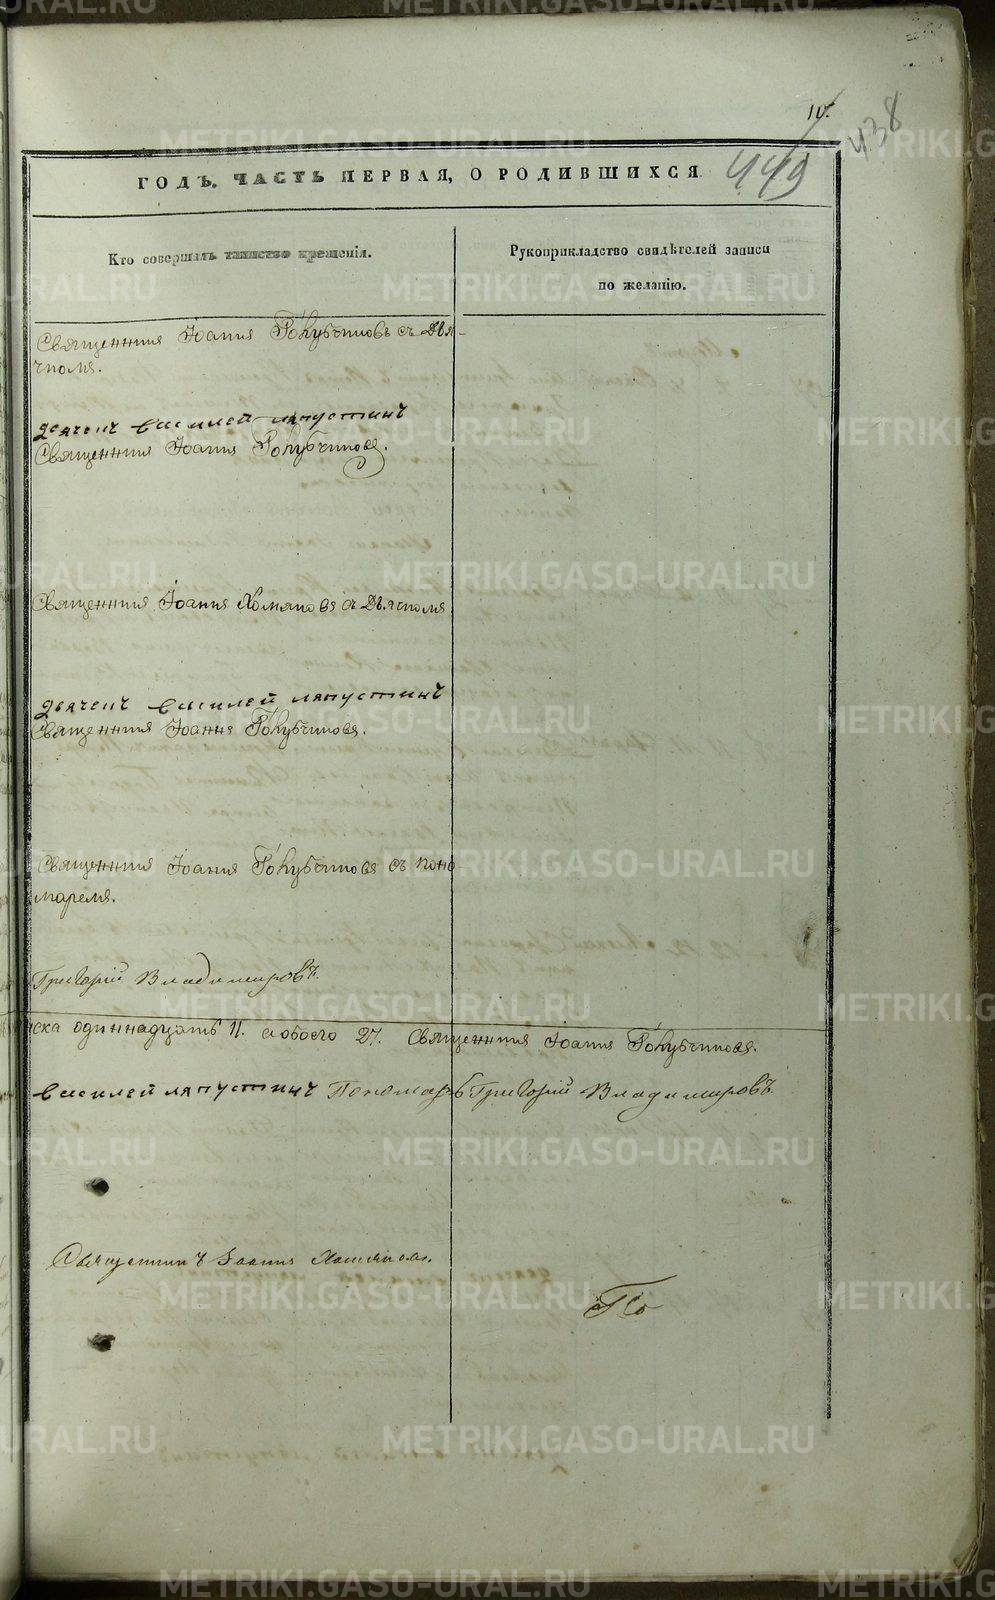 10.
438
449
ГОДЪ. ЧАСТЬ ПЕРВАЯ, О РОДИВШИХСЯ
Кто совершалъ таинство крещенія.
Рукоприкладство свидѣтелей записи
по желанію.
Священникъ Іоаннъ Голубчиковъ съ Дья-
чкомъ.
дьячекъ василей ляпустинъ
Священникъ Іоаннъ Голубчиковъ.
Священникъ Іоаннъ Хомяковъ съ Дьячкомъ
дьячекъ василей ляпустинъ
Священникъ Іоаннъ Голубчиковъ.
Священникъ Іоаннъ Голубчиковъ съ поно
маремъ.
Григорій Владимировъ.
ска одиннадцать 11. а обоего 27. Священникъ Іоаннъ Голубчиковъ.
василей ляпустинъ Пономарь Григорій Владимировъ
Священникъ Іоаннъ Хомяковъ.
По
METRIKI.GASO-URAL.RU